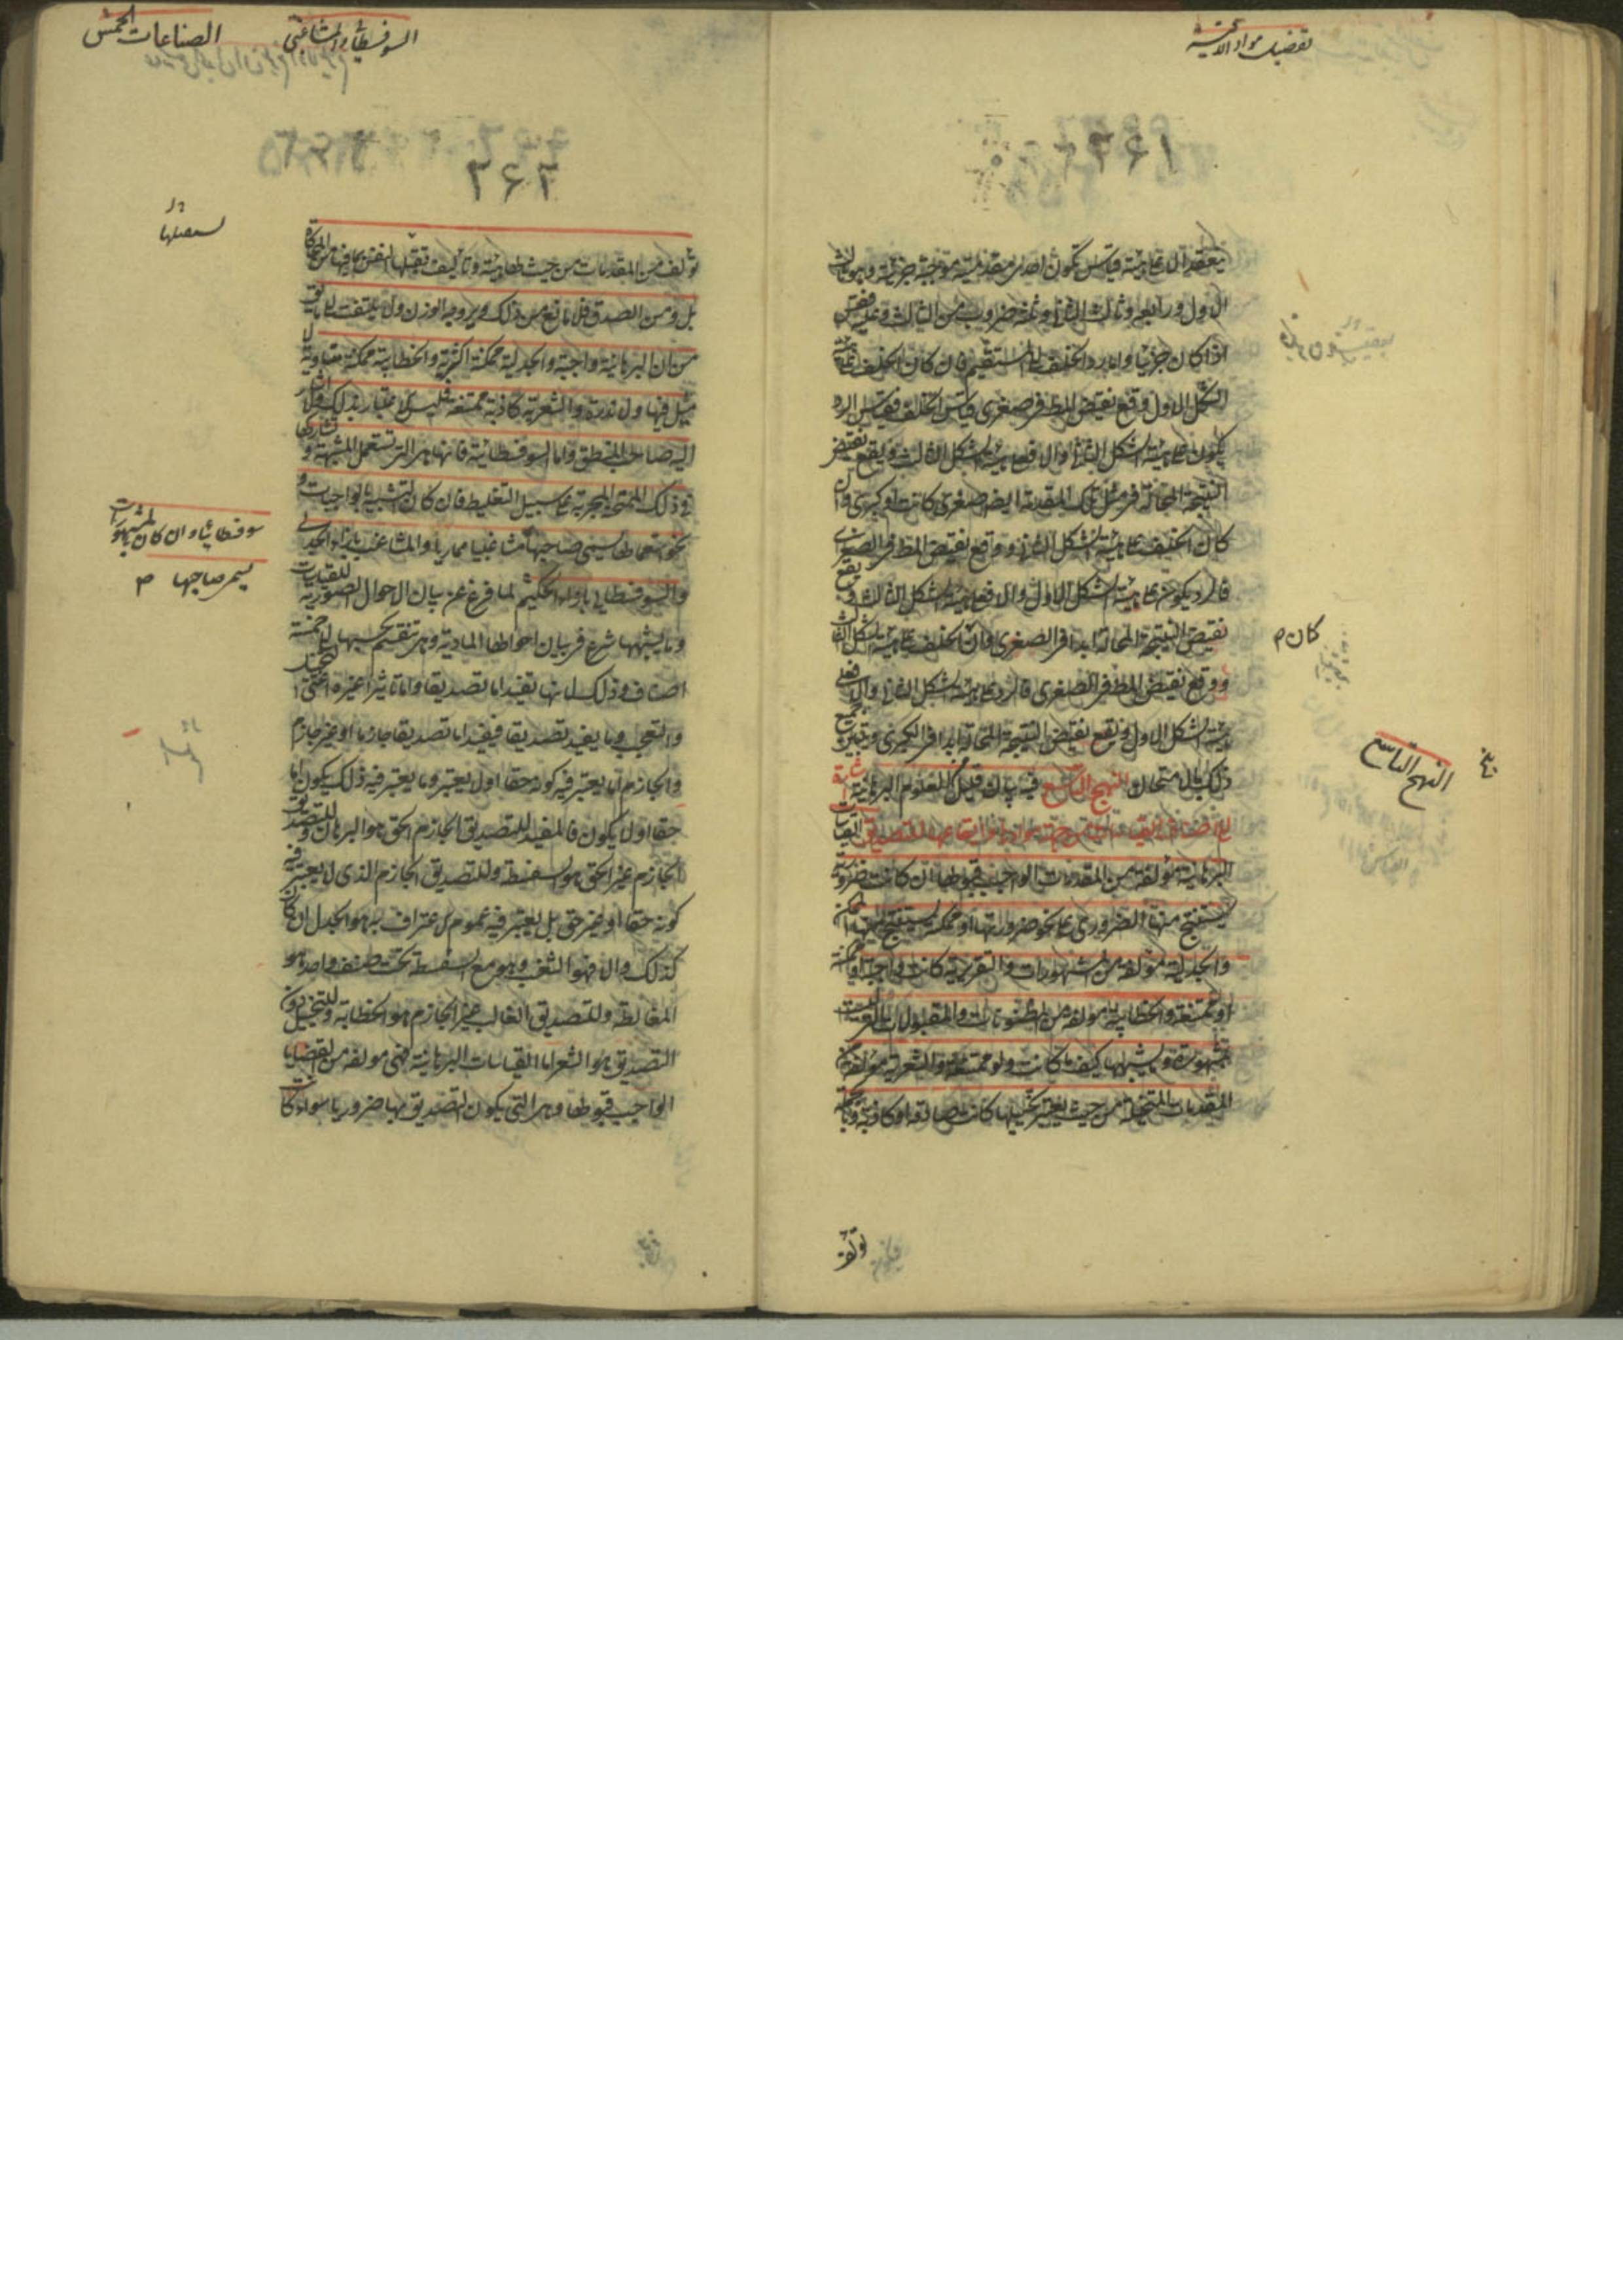 تفصيل مواد الاقيسة
٢٦١
ينعقد الا على هيئة قياس تكون احدى مقدمتيه موجبة جزئية وهو ثالث
الاول ورابعه وثالث الثانى وخمسة ضروب من الثالث وعليه فقس
اذا كان جزئيا واما رد الخلف الى المستقيم فان كان الخلف على هيئة
الشكل الاول وقع نقيض المط فى صغرى قياس الخلف فقياس الرد
يكون على هيئة الشكل الثانى والا فعلى هيئة الشكل الثالث ويقع نقيض
النتيجة المحالة فى مثل تلك المقدمة ايضا صغرى كانت او كبرى وان
كان الخلف على هيئة الشكل الثانى ووقع نقيض المط فى الصغرى
فالرد يكون على هيئة الشكل الاول والا فعلى هيئة الشكل الثالث ويقع
نقيض النتيجة المحالة ابدا فى الصغرى وان كان الخلف على هيئة الشكل الثالث
ووقع نقيض المط فى الصغرى فالرد على هيئة الشكل الثانى والا فعلى
هيئة الشكل الاول ويقع نقيض النتيجة المحالة ابدا فى الكبرى وتبين جميع
ذلك بالامتحان النهج التاسع فيه بيان قليل للعلوم البرهانية اشارة
الى اصناف القياسات من جهة موادها وايقاعها للتصديق القياسات
البرهانية مؤلفة من المقدمات الواجب قبولها ان كانت ضرورية
يستنتج منها الضرورى على نحو ضرورتها او ممكنة يستنتج منها الممكن
والجدلية مؤلفة من المشهورات والتقريرية كانت واجبة او ممكنة
او ممتنعة والخطابية مؤلفة من المظنونات والمقبولات التى ليست
بمشهورة وما يشبهها كيف كانت ولو ممتنعة والشعرية مؤلفة من
المقدمات المتخيلة من حيث يعتبر تخيلها كانت صادقة او كاذبة وبالجملة
كان م
النهج التاسع
تؤلف
السوفسطائى والمشاغبى
الصناعات الخمس
٢٦٢
تؤلف من المقدمات من حيث لها هيئة وتأليف تقبلها النفس بما فيها من المحاكاة
بل ومن الصدق فلا مانع من ذلك ويروجه الوزن ولا يلتفت الى ما يق
من ان البرهانية واجبة والجدلية ممكنة اكثرية والخطابية ممكنة متساوية لا
ميل فيها ولا ندرة والشعرية كاذبة ممتنعة فليس الاعتبار بذلك ولا اشار
اليه صاحب المنطق واما السوفسطائية فانها هى التى تستعمل المشبهة وتشاركها
فى ذلك الممتحنة المجربة على سبيل التغليط فان كان التشبيه بالواجبات و
نحو استعمالها سمى صاحبها مشاغبيا مماريا والمشاغب بازاء الجدلى
والسوفسطائى بازاء الحكيم لما فرغ عن بيان الاحوال الصورية للقياسات
وما يشبهها شرع فى بيان احوالها المادية وهى تنقسم بحسبها الى خمسة
اصناف وذلك لانها تفيد اما تصديقا واما تاثيرا غيره اعنى التخييل
والتعجب وما يفيد تصديقا فيفيد اما تصديقا جازما او غير جازم
والجازم اما يعتبر فيه كونه حقا اولا يعتبر وما يعتبر فيه ذلك يكون اما
حقا اولا يكون فالمفيد للتصديق الجازم الحق هو البرهان وللتصديق
الجازم غير الحق هو السفسطة وللتصديق الجازم الذى لا يعتبر فيه
كونه حقا او غير حق بل يعتبر فيه عموم الاعتراف به هو الجدل ان كان
كذلك والا فهو الشغب وهو مع السفسطة تحت صنف واحد هو
المغالطة وللتصديق الغالب غير الجازم هو الخطابة وللتخييل دون
التصديق هو الشعر اما القياسات البرهانية فهى مولفة من القضايا
الواجب قبولها وهى التى يكون التصديق بها ضروريا سواء كا
سوفسطائيا وان كان بالمشهورات
يسمى صاحبها م